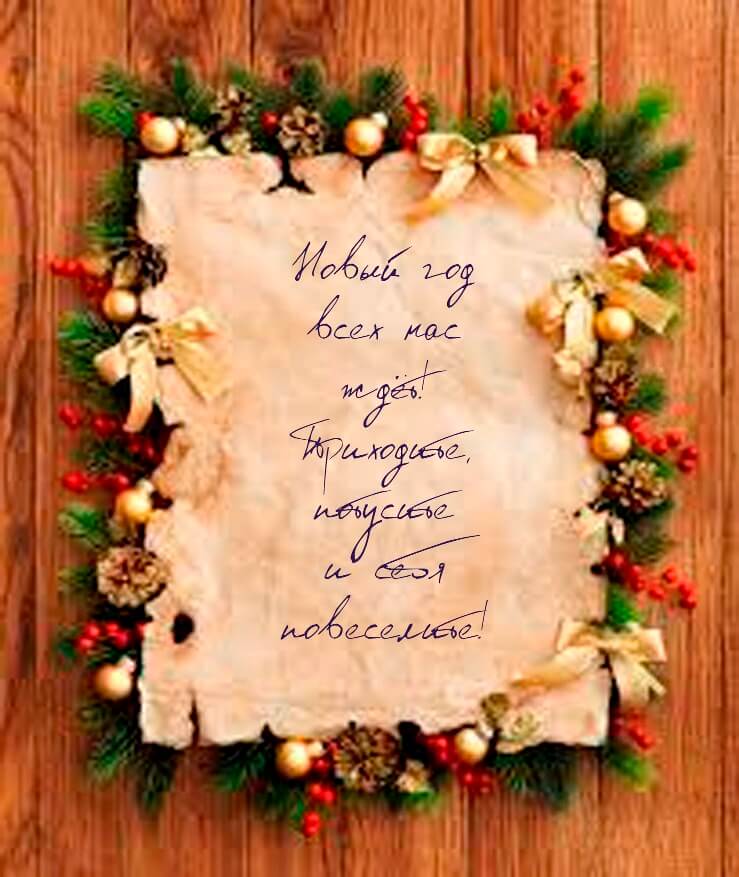 Новый год
всех нас
ждёт!
Приходите,
потусите
и себя
повеселите!